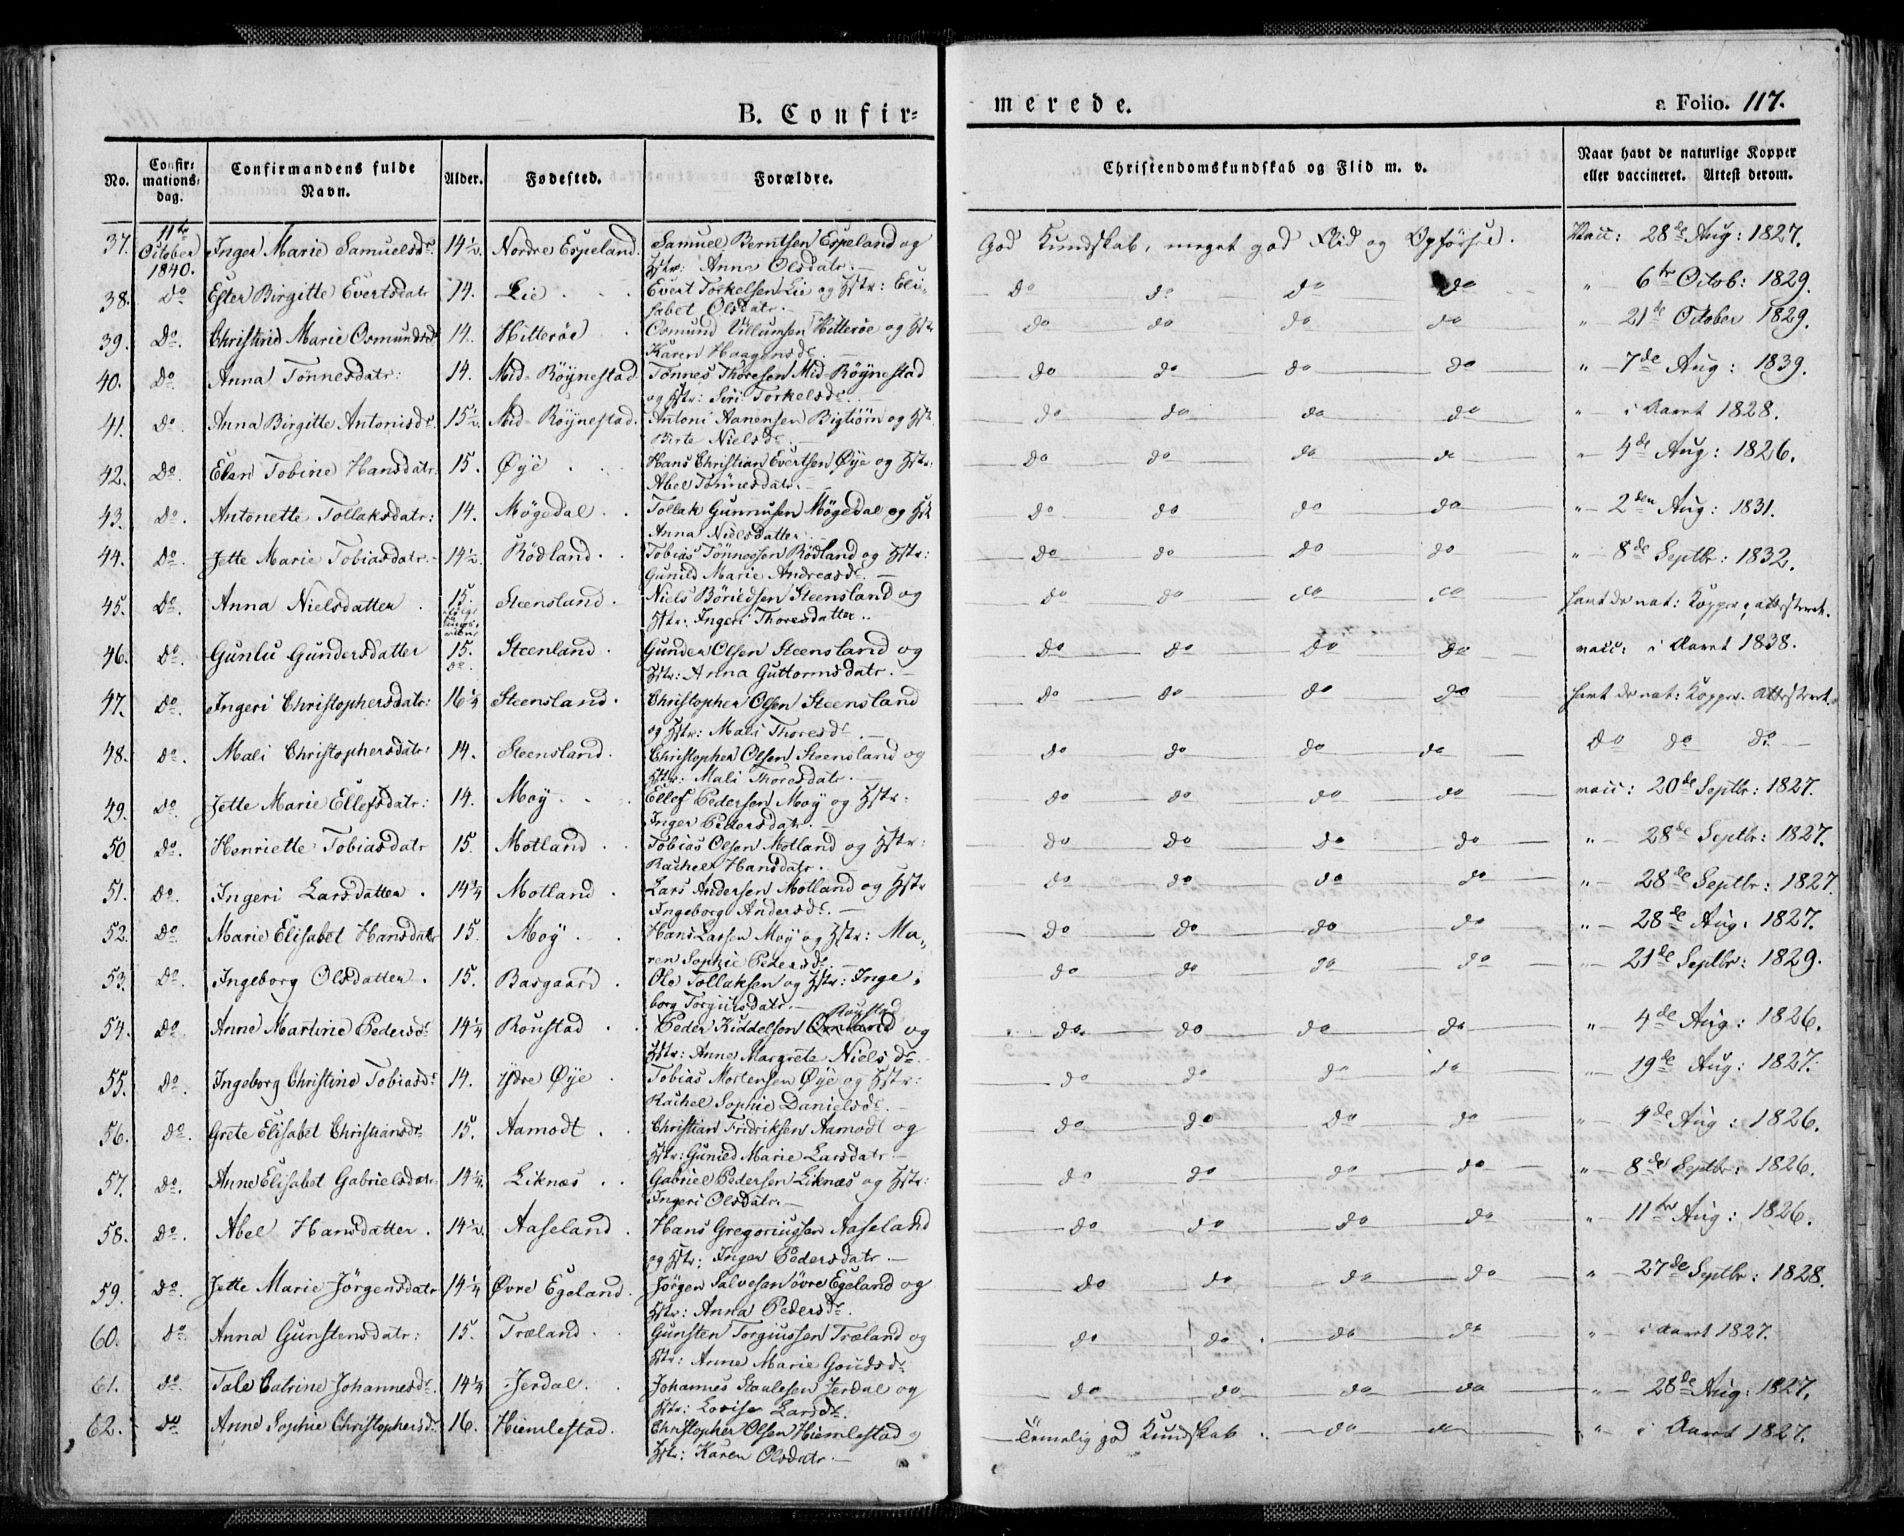 B. Confir-
merede.
a Folio. 117.
No.
Confir-
mations-
dag.
Confirmandens fulde
Navn.
Alder.
Fødested.
Forældre.
Christendomskundskab og Flid m. v.
Naar havt de naturlige Kopper
eller vaccineret. Attest derom.
37. 11te October 1840. Inger Marie Samuelsdr 14½ Nordre Espeland. Samuel Berntsen Espeland og God Kundskab, meget god Flid og Opførsel. Vacc: 28de Aug: 1827.
Hstr: Anna Olsdatr. —
38. Do Ester Birgitte Evertsdatr 14. Lie Evert Torkelsen Lie og Hstr: Eli- do do do do " 6te Octob: 1829.
sabet Olsdatr. —
39. Do. Christine Marie Osmundsdr 14. Hitterøe Osmund Villumsen Hitterøe og Hstr do do do do " 21de October 1829.
Karen Haagensdr. —
40. Do Anna Tønnesdatr: 14. Mid-Røynestad Tønnes Thoresen Mid-Røynestad do do do do " 7de Aug: 1839.
og Hstr: Siri Torkelsdr. —
41. Do. Anna Birgitte Antonisdr. 15½ Mid-Røynestad. Antoni Aanensen Bigtiørn og Hstr. do do do do " i Aaret 1828.
Birte Nielsdr. —
42. Do. Elen Tobine Hansdatr. 15. Øye Hans Christian Evertsen Øye og Hstr: do do do do " 4de Aug: 1826.
Abel Tønnesdatr. —
43. Do. Antonette Tollaksdatr: 14. Møgedal Tollak Gunnusen Møgedal og Hstr do do do do " 2den Aug: 1831.
Anna Nielsdatter —
44. Do. Jette Marie Tobiasdatr. 14½ Rødland. Tobias Tønnessen Rødland og Hstr: do do do do " 8de Septbr: 1832.
Gunild Marie Andreasdr. —
45. Do. Anna Nielsdatter. 15. Steensland. Niels Børildsen Steensland og do do do do havt de nat: Kopper, attesteret.
Hstr: Ingeri Thoresdatter.
46. Do. Gunlu Gundersdatter 15. do Steenland. Gunder Olsen Steensland og do do do do vacc: i Aaret 1838.
Hstr: Anna Guttormsdatr. —
47. Do. Ingeri Christophersdatr: 16¼ Steensland. Christopher Olsen Steensland do do do do havt de nat: Kopper. Attesteret.
og Hstr: Mali Thoresdr. —
48. Do. Mali Christophersdatr: 14. Steensland. Christopher Olsen Steensland og do do do do do do do —
Hstr: Mali Thoresdatr. —
49. Do Jette Marie Ellefsdatr: 14. Moy Ellef Pedersen Moy og Hstr: do do do do vacc: 20de Septbr: 1827.
Inger Pedersdatr. —
50 Do. Henriette Tobiasdatr 15. Motland. Tobias Olsen Motland og Hstr: do do do do " 28de Septbr: 1827.
Rachel Hansdatr. —
51. Do. Ingeri Larsdatter. 14¼ Motland. Lars Andersen Motland og Hstr do do do do " 28de Septbr: 1827.
Ingeborg Andersdr. —
52. Do. Marie Elisabet Hansdatr 15. Moy. Hans Larsen Moy og Hstr: Ma- do do do do " 28de Aug: 1827.
ren Sophie Pedersdr. —
53. Do Ingeborg Olsdatter. 15. Basgaard. Ole Tollaksen og Hstr: Inge- do do do do 21de Septbr: 1829.
borg Torgiusdatr. —
54. Do Anne Martine Pedersdr 14¼ Roustad Peder Kiddelsen Omland Roustad og do do do do " 4de Aug: 1826.
Hstr: Anne Margrete Nielsdr.
55. Do. Ingeborg Christine Tobiasdr 14. Ydre Øye. Tobias Mortensen Øye og Hstr: do do do do " 19de Aug: 1827.
Rachel Sophie Danielsdr. —
56. Do. Grete Elisabet Christiansdr 15. Aamodt. Christian Fridriksen Aamodt og do do do do " 4de Aug: 1826.
Hstr: Gunild Marie Larsdatr. —
57. Do. Anne Elisabet Gabrielsdatr. 14¼ Liknæs Gabriel Pedersen Liknæs og Hstr: do do do do " 8de Septbr: 1826.
Ingeri Olsdatr. —
58. Do. Abel Hansdatter. 14½ Aaseland. Hans Gregoriussen Aaseland do do do do " 11te Aug: 1826.
og Hstr: Inger Pedersdatr. —
59. Do. Jette Marie Jørgensdatr 14¼ Øvre Egeland. Jørgen Salvesen Øvre Egeland og do do do do " 27de Septbr: 1828.
Hstr: Anna Pedersdr.
60. Do Anna Gunstensdatr: 15. Træland. Gunsten Torgiussen Træland og do do do do " i Aaret 1827.
Hstr: Anne Marie Goudsdr
61. Do Tale Catrine Johannesdr. 14¼ Jerdal. Johannes Staalesen Jerdal og do do do do " 28de Aug: 1827.
Hstr: Lovise Larsdr.
62. Do Anne Sophie Christophersdr. 16. Hiemlestad. Christopher Olsen Hiemlestad og Temmelig god Kundskab. do do " i Aaret 1827.
Hstr: Karen Olsdatr. —